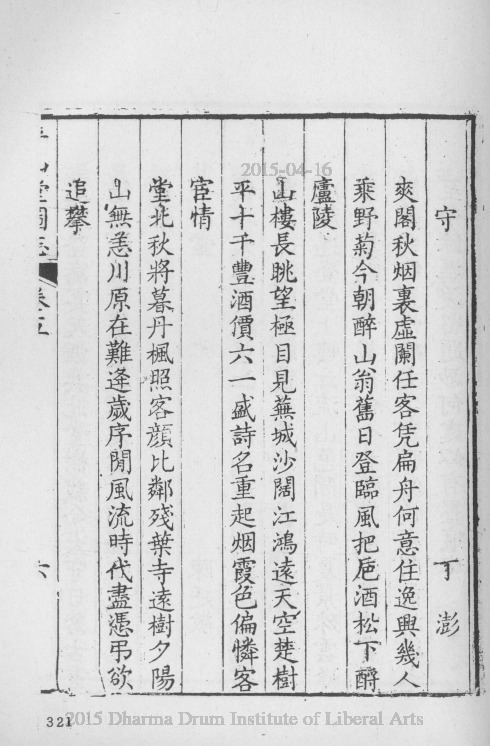 守　丁澎
爽閣秋烟裏虛闌任客凭扁舟何意住逸興幾人
乘野菊今朝醉山翁舊日登臨風把巵酒松下酹
廬陵
山樓長眺望極目見蕪城沙闊江鴻遠天空楚樹
平十千豐酒價六一盛詩名重起烟霞色偏憐客
宦情
堂北秋將暮丹楓照客顏比鄰殘葉寺遠樹夕陽
山無恙川原在難逢歲序閒風流時代盡憑弔欲
追攀
山堂圖志 卷五 六
2015-04-16
321
2015 Dharma Drum Institute of Liberal Arts